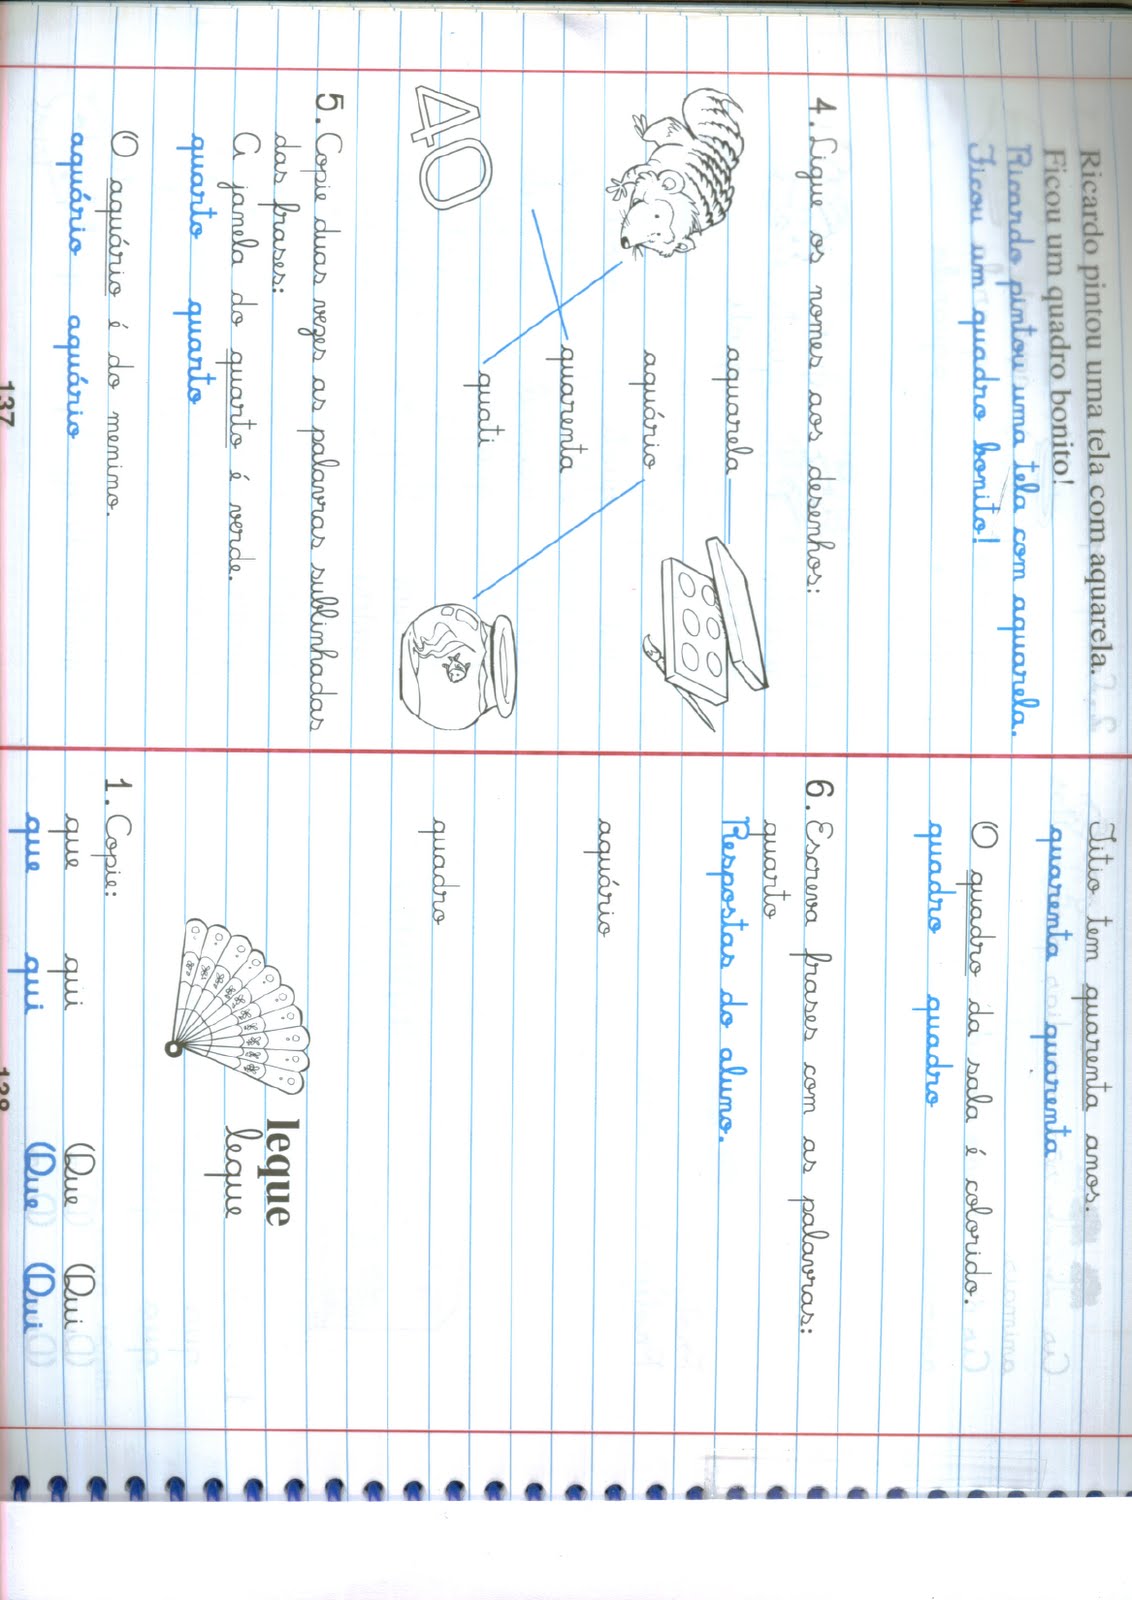 Ricardo pintou uma tela com aquarela.
Ficou um quadro bonito!
Ricardo pintou uma tela com aquarela.
Ficou um quadro bonito!
4. Ligue os nomes aos desenhos:
aquarela
aquário
quarenta
quati
40
5. Copie duas vezes as palavras sublinhadas
das frases:
A janela do quarto é verde.
quarto quarto
O aquário é do menino.
aquário aquário
137
Titio tem quarenta anos.
quarenta quarenta
O quadro da sala é colorido.
quadro quadro
6. Escreva frases com as palavras:
quarto
Respostas do aluno.
aquário
quadro
leque
leque
1. Copie:
que qui Que Qui
que qui Que Qui
138